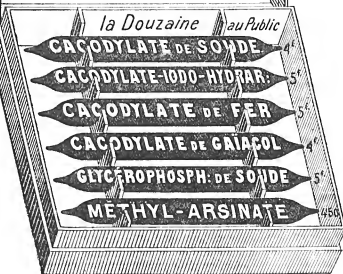 la Douzaine au Public
CACODYLATE DE SOUDE 4f
CACODYLATE-IODO-HYDRAR: 5f
CACODYLATE DE FER 5f
CACODYLATE DE GAÏACOL 4f
GLYCÉROPHOSPH: DE SOUDE 5f
MÉTHYL-ARSINATE 450